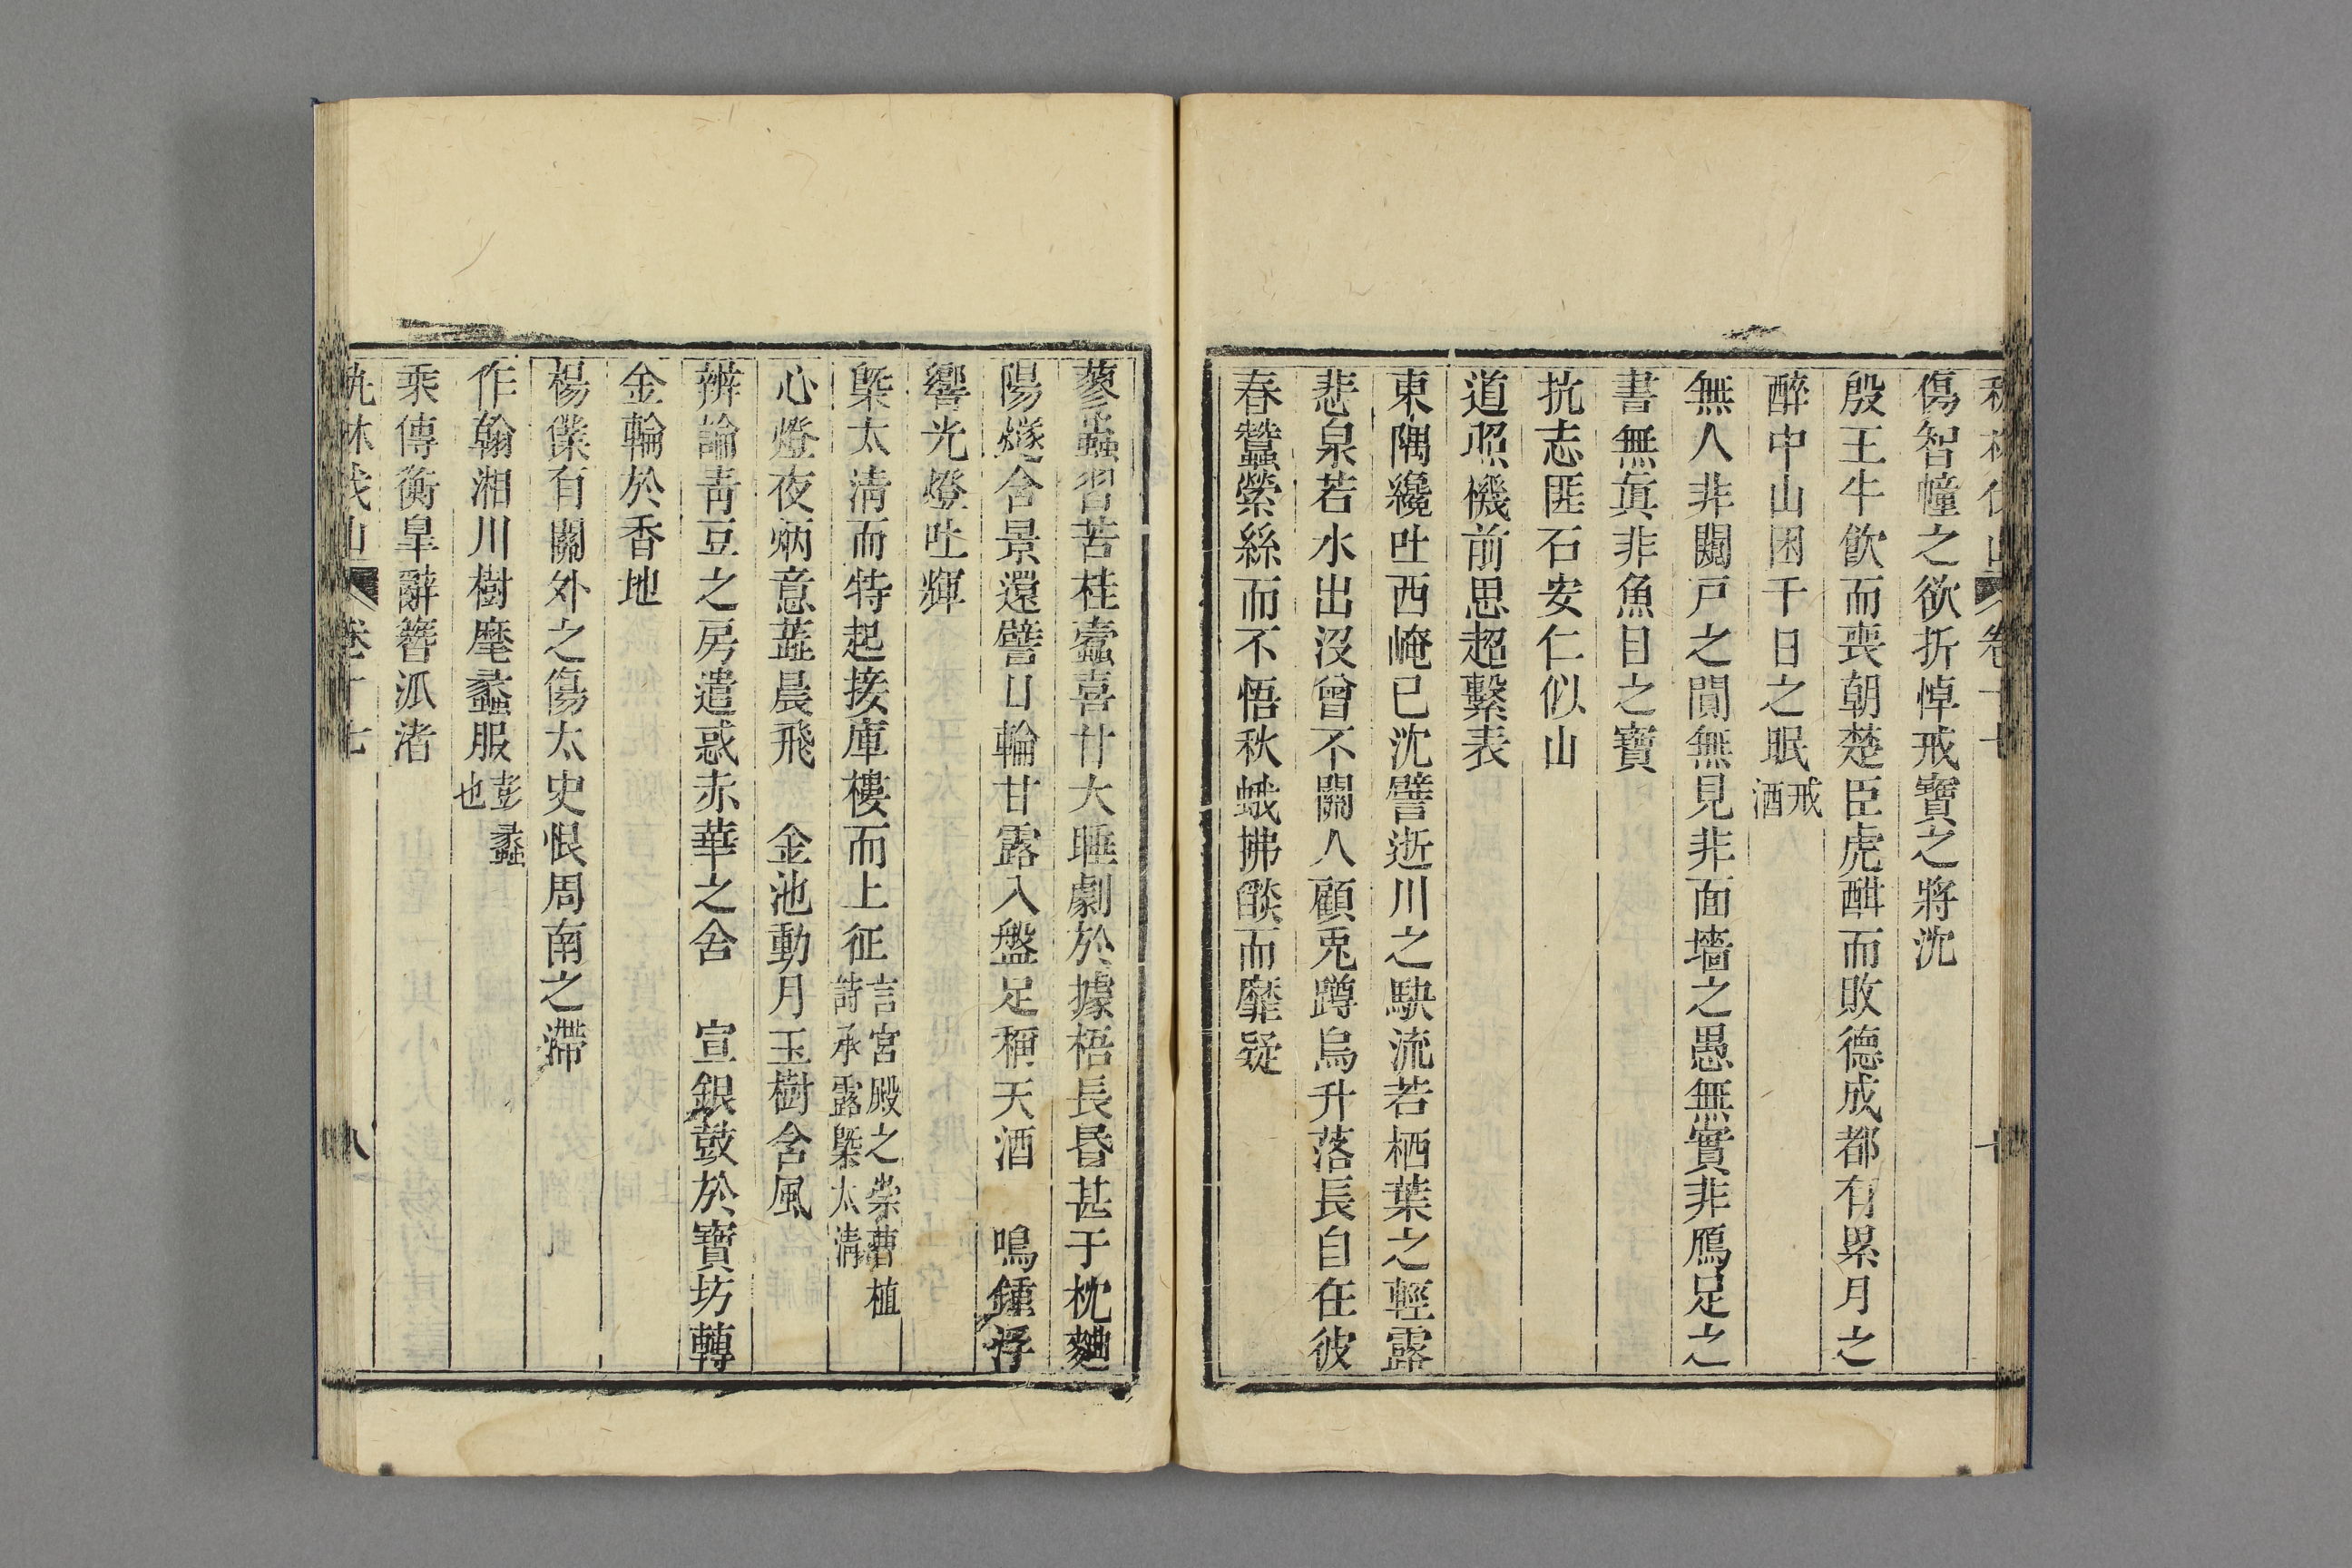 傷智幢之欲折悼戒寶之將沈
殷王牛飲而喪朝楚臣虎酣而敗德成都有累月之
醉中山困千日之眠戒酒
無人非闚戸之間無見非面墻之愚無實非鴈足之
書無眞非魚目之寶
抗志匪石安仁似山
道照機前思超繫表
東隅纔吐西崦已沈譬逝川之駃流若栖葉之輕露
悲泉若水出沒曾不關人顧兎蹲烏升落長自在彼
春蠶縈絲而不悟秋蛾拂燄而靡疑
蓼蟲習苦桂蠹喜甘大睡劇於據梧長昏甚于枕麯
陽燧含景還譬日輪甘露入盤足稱天酒　鳴鍾浮
響光燈吐輝
槩太清而特起接庫樓而上征言宮殿之崇曹植詩承露槩太清
心燈夜炳意蘂晨飛　金池動月玉樹含風
辨論靑豆之房遣惑赤華之舍　宣銀鼓於寶坊轉
金輪於香地
楊僕有關外之傷太史恨周南之滯
作翰湘川樹麾蠡服彭蠡也
乘傳衡皐辭簪派渚
卷十七
八